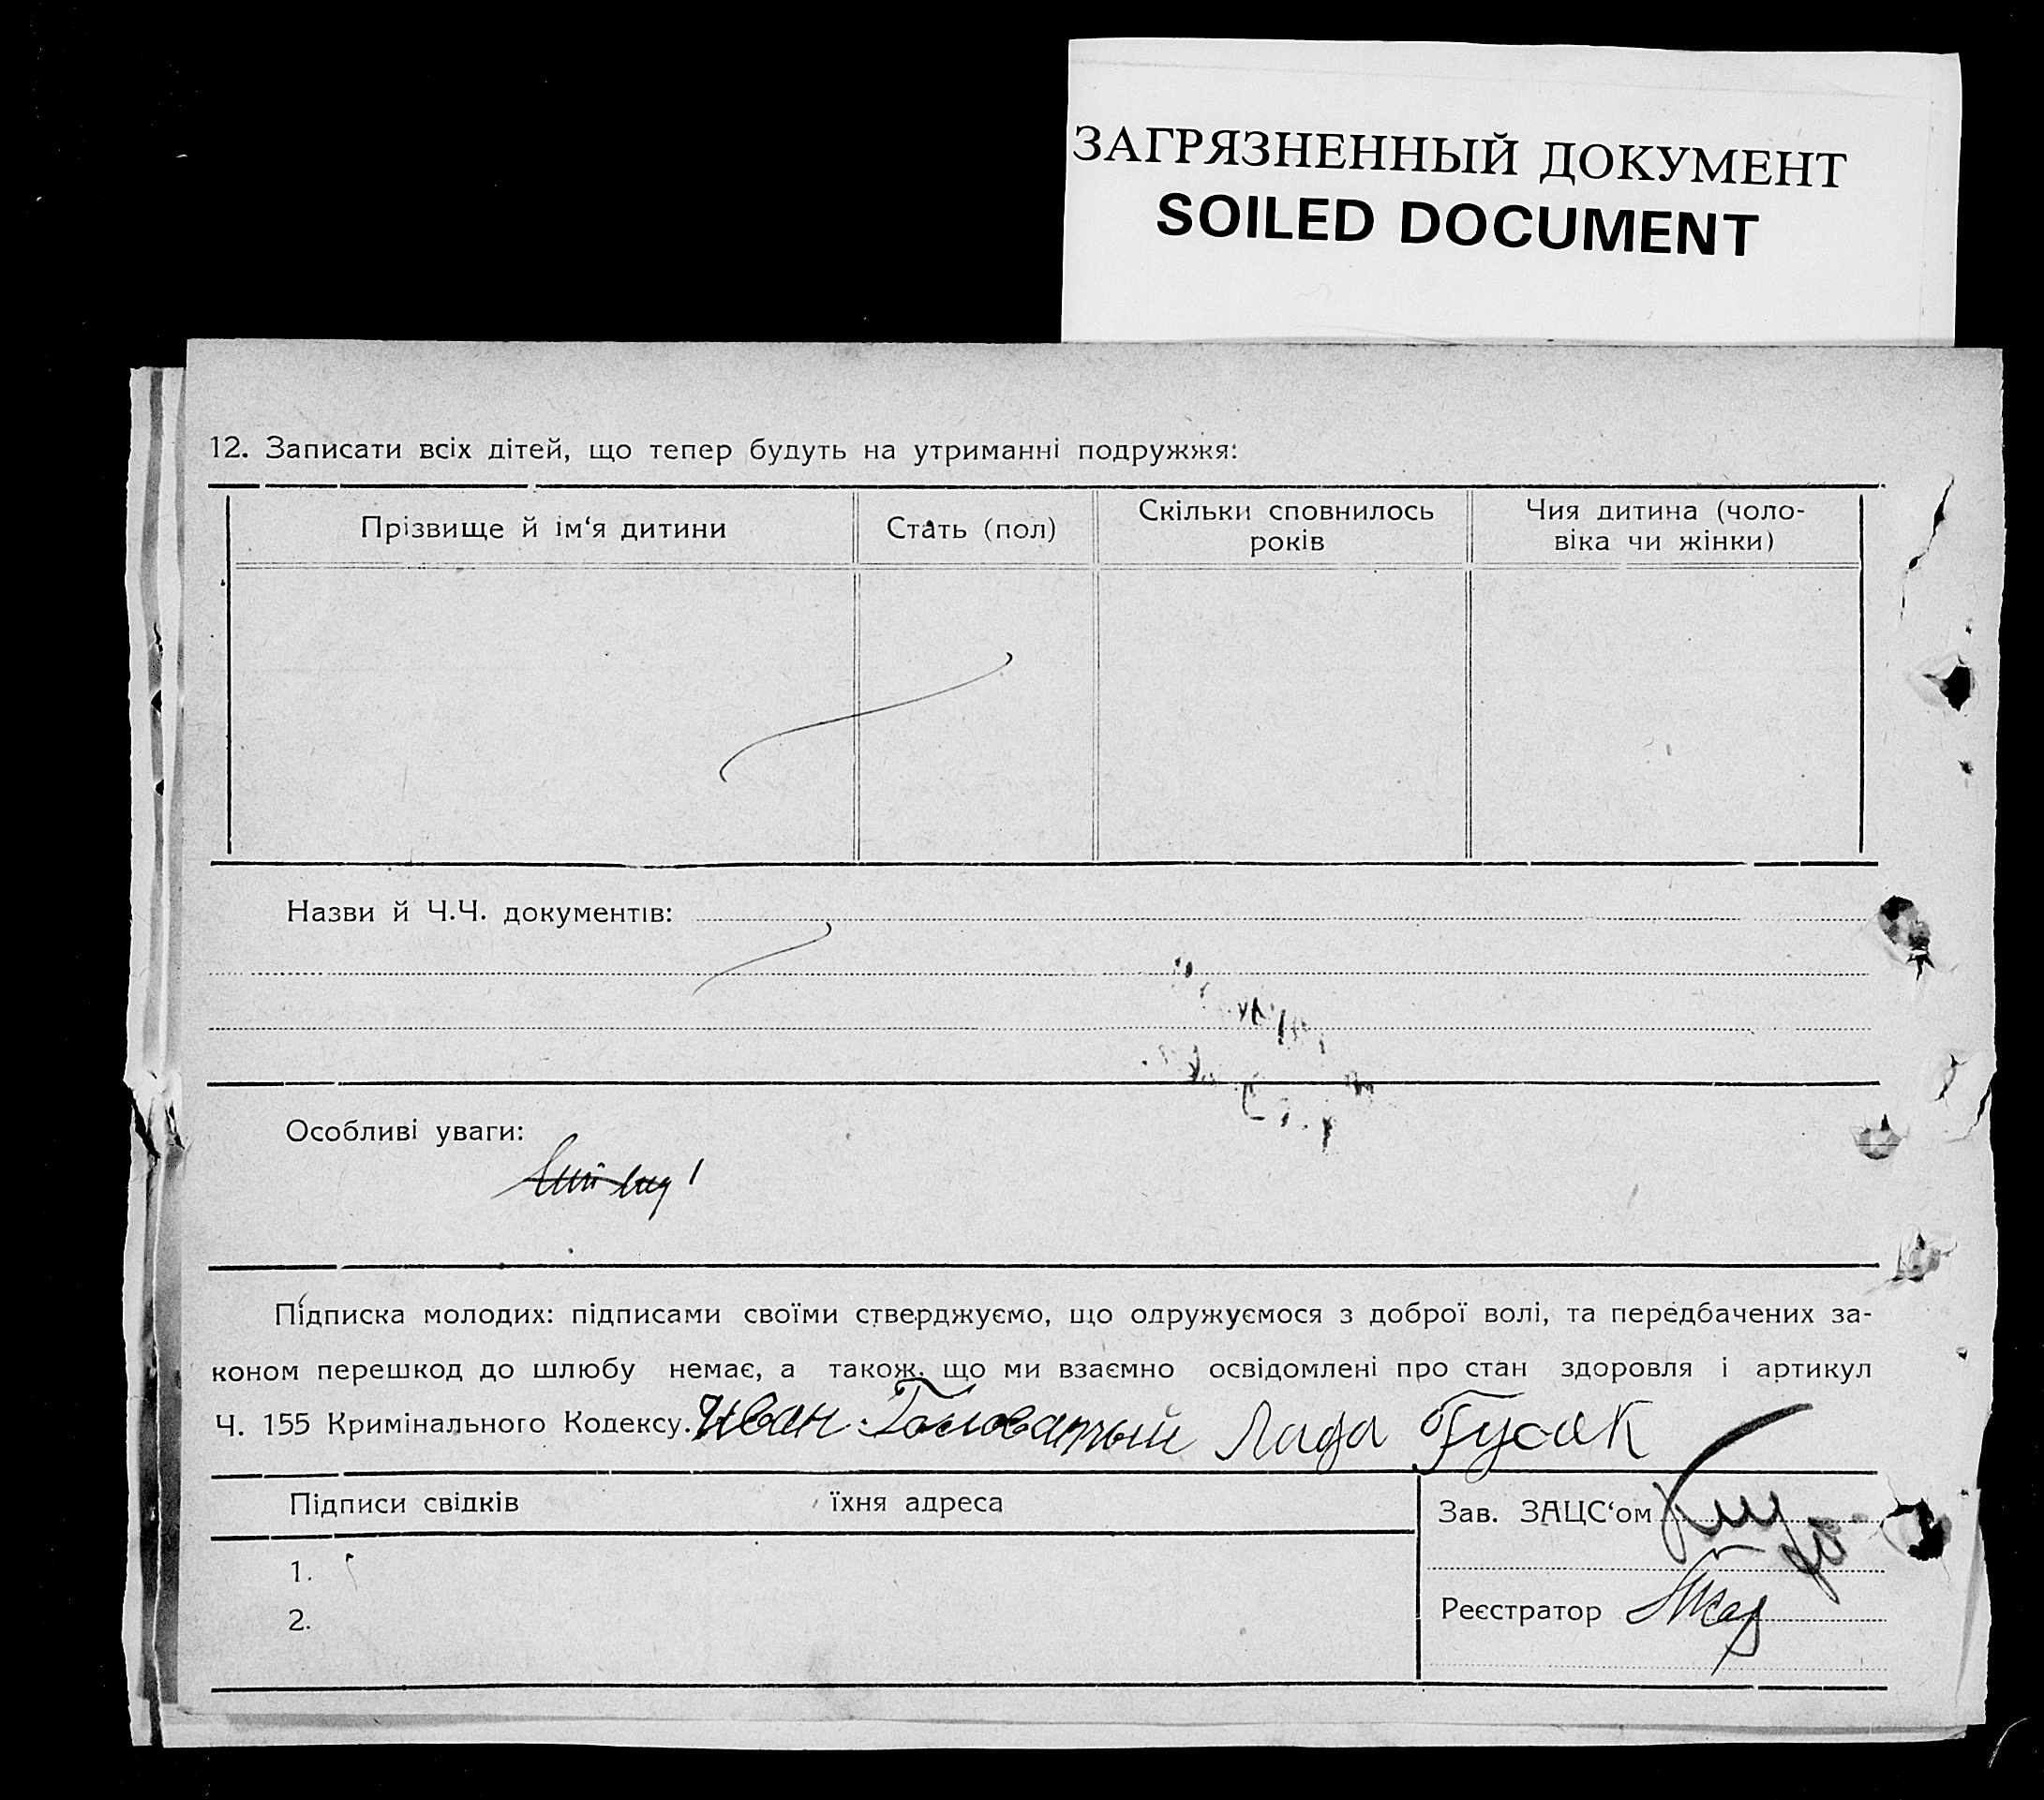 ЗАГРЯЗНЕННЫЙ ДОКУМЕНТ
SOILED DOCUMENT
12. Записати всіх дітей, що тепер будуть на утриманні подружжя:
Прізвище й ім‘я дитини
Стать (пол)
Скільки сповнилось
років
Чия дитина (чоло-
віка чи жінки)
Назви й Ч.Ч. документів:
Особливі уваги:
Підписка молодих: підписами своїми стверджуємо, що одружуємося з доброї волі, та передбачених за-
коном перешкод до шлюбу немає, а також, що ми взаємно освідомлені про стан здоровля і артикул
Ч. 155 Кримінального Кодексу. Иван Головатый Лада Гусак
Підписи свідків їхня адреса
Зав. ЗАЦС‘ом
1.
2.
Реєстратор